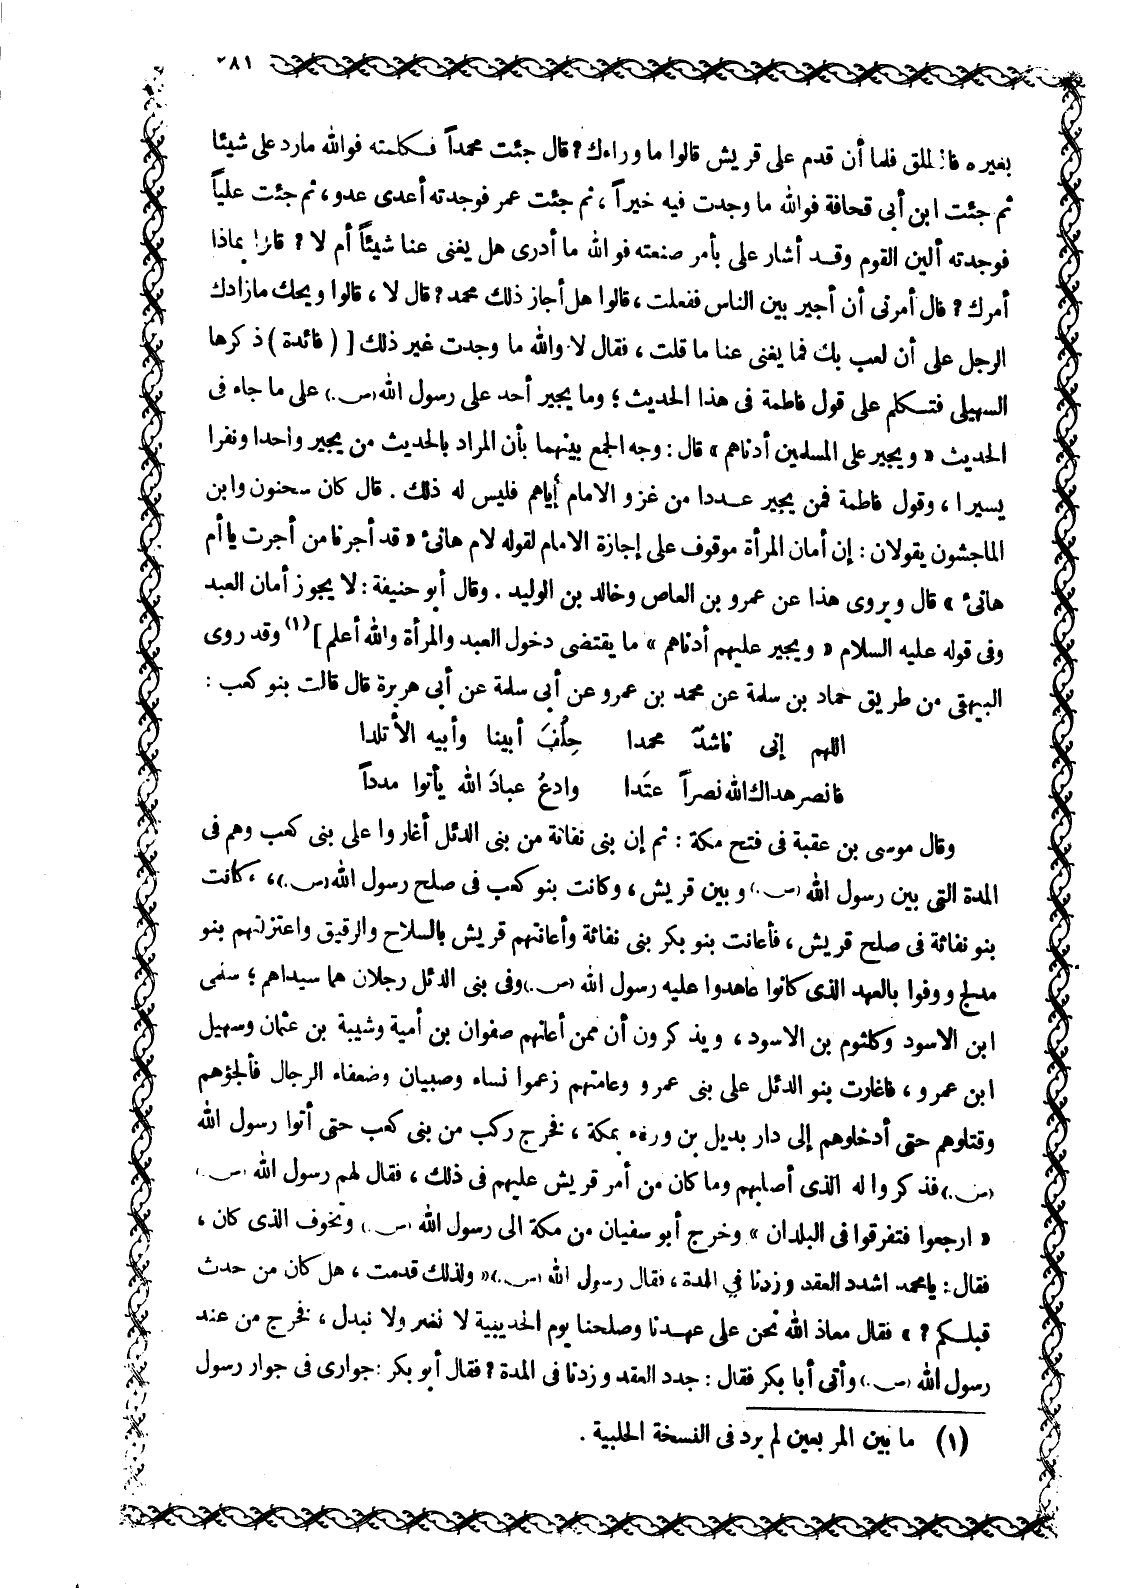 ٢٨١
بعيره فانطلق فلما أن قدم على قريش قالوا ما وراءك؟ قال جئت محمداً فكلمته فوالله مارد على شيئا
ثم جئت ابن أبى قحافة فوالله ما وجدت فيه خيراً، ثم جئت عمر فوجدته أعدى عدو، ثم جئت علياً
فوجدته ألين القوم وقد أشار على بأمر صنعته فوالله ما أدرى هل يغنى عنا شيئاً أم لا؟ قالوا بماذا
أمرك؟ قال أمرنى أن أجير بين الناس ففعلت، قالوا هل أجاز ذلك محمد؟ قال لا، قالوا ويحك مازادك
الرجل على أن لعب بك فما يغنى عنا ما قلت، فقال لا والله ما وجدت غير ذلك [ ( فائدة ) ذكرها
السهيلى فتكلم على قول فاطمة فى هذا الحديث؛ وما يجير أحد على رسول الله (ص.) على ما جاء فى
الحديث « ويجير على المسلمين أدناهم » قال: وجه الجمع بينهما بأن المراد بالحديث من يجير واحدا ونفرا
يسيرا، وقول فاطمة فمن يجير عددا من غزو الامام إياهم فليس له ذلك. قال كان سحنون وابن
الماجشون يقولان: إن أمان المرأة موقوف على إجازة الامام لقوله لام هانئ « قد أجرنا من أجرت يا أم
هانئ » قال ويروى هذا عن عمرو بن العاص وخالد بن الوليد. وقال أبو حنيفة: لا يجوز أمان العبد
وفى قوله عليه السلام « ويجير عليهم أدناهم » ما يقتضى دخول العبد والمرأة والله أعلم ](١) وقد روى
البيهقى من طريق حماد بن سلمة عن محمد بن عمرو عن أبى سلمة عن أبى هريرة قال قالت بنو كعب:
اللهم إنى ناشدٌ محمدا حِلْفَ أبينا وأبيه الأتلدا
فانصر هداك الله نصراً عتَدا وادعُ عبادَ الله يأتوا مدداً
وقال موسى بن عقبة فى فتح مكة: ثم إن بنى نفاثة من بنى الدئل أغاروا على بنى كعب وهم فى
المدة التى بين رسول الله (ص.) وبين قريش، وكانت بنو كعب فى صلح رسول الله (ص.)، وكانت
بنو نفاثة فى صلح قريش، فأعانت بنو بكر بنى نفاثة وأعانتهم قريش بالسلاح والرقيق واعتزلتهم بنو
مدلج ووفوا بالعهد الذى كانوا عاهدوا عليه رسول الله (ص.) وفى بنى الدئل رجلان هما سيداهم؛ سلمى
ابن الاسود وكلثوم بن الاسود، ويذكرون أن ممن أعانهم صفوان بن أمية وشيبة بن عثمان وسهيل
ابن عمرو، فاغارت بنو الدئل على بنى عمرو وعامتهم زعموا نساء وصبيان وضعفاء الرجال فألجؤهم
وقتلوهم حتى أدخلوهم إلى دار بديل بن ورقاء بمكة، فخرج ركب من بنى كعب حتى أتوا رسول الله
(ص.) فذكروا له الذى أصابهم وما كان من أمر قريش عليهم فى ذلك، فقال لهم رسول الله (ص.)
« ارجعوا فتفرقوا فى البلدان » وخرج أبو سفيان من مكة الى رسول الله (ص.) وتخوف الذى كان،
فقال: يا محمد اشدد العقد وزدنا في المدة، فقال رسول الله (ص.) « ولذلك قدمت، هل كان من حدث
قبلكم؟ » فقال معاذ الله نحن على عهدنا وصلحنا يوم الحديبية لا نغير ولا نبدل، فخرج من عند
رسول الله (ص.) وأتى أبا بكر فقال: جدد العقد وزدنا فى المدة؟ فقال أبو بكر: جوارى فى جوار رسول
(١) ما بين المربعين لم يرد فى النسخة الحلبية.